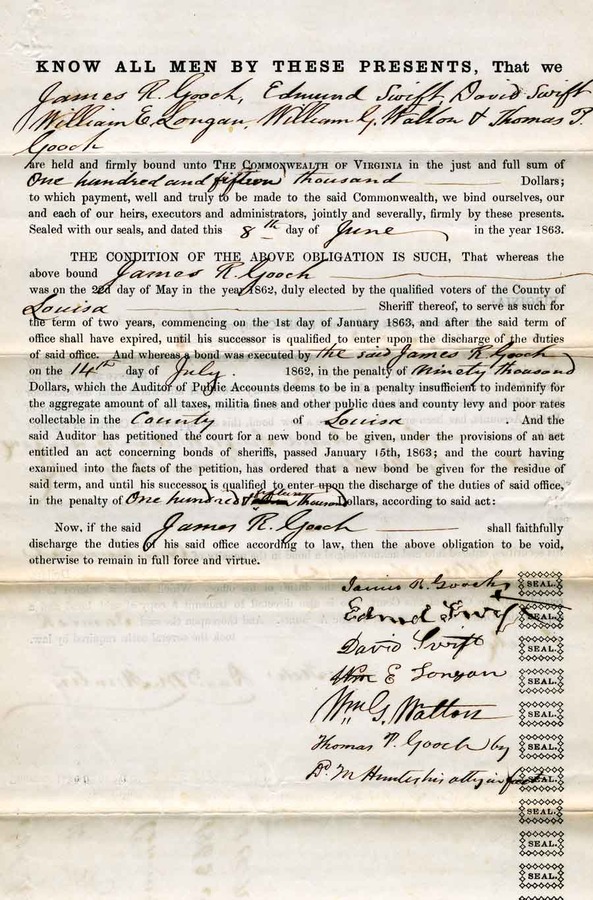 KNOW ALL MEN BY THESE PRESENTS, That we
James R. Gooch, Edmund Swift, David Swift
William E. Longan, William G. Walton & Thomas P.
Gooch
are held and firmly bound unto THE COMMONWEALTH OF VIRGINIA in the just and full sum of
One hundred and fifteen thousand Dollars;
to which payment, well and truly to be made to the said Commonwealth, we bind ourselves, our
and each of our heirs, executors and administrators, jointly and severally, firmly by these presents.
Sealed with our seals, and dated this 8th day of June in the year 1863.
THE CONDITION OF THE ABOVE OBLIGATION IS SUCH, That whereas the
above bound James R. Gooch
was on the 22d day of May in the year 1862, duly elected by the qualified voters of the County of
Louisa Sheriff thereof, to serve as such for
the term of two years, commencing on the 1st day of January 1863, and after the said term of
office shall have expired, until his successor is qualified to enter upon the discharge of the duties
of said office. And whereas a bond was executed by the said James R. Gooch
on the 14th day of July. 1862, in the penalty of ninety thousand
Dollars, which the Auditor of Public Accounts deems to be in a penalty insufficient to indemnify for
the aggregate amount of all taxes, militia fines and other public dues and county levy and poor rates
collectable in the County of Louisa And the
said Auditor has petitioned the court for a new bond to be given, under the provisions of an act
entitled an act concerning bonds of sheriffs, passed January 15th, 1863; and the court having
examined into the facts of the petition, has ordered that a new bond be given for the residue of
said term, and until his successor is qualified to enter upon the discharge of the duties of said office,
in the penalty of One hundred & fifteen thousand Dollars, according to said act:
Now, if the said James R. Gooch shall faithfully
discharge the duties of his said office according to law, then the above obligation to be void,
otherwise to remain in full force and virtue.
James R. Gooch SEAL.
Edmd Swift SEAL.
David Swift SEAL.
Wm E Longan SEAL.
Wm G. Walton SEAL.
Thomas P. Gooch by SEAL.
D. M Hunter his atty in fact SEAL.
SEAL.
SEAL.
SEAL.